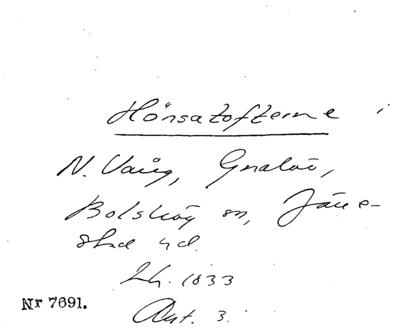 Hönsatofterne
N. Vång, Gualöv,
Bolshög sn, Järre-
stad hd.
Lh. 1833
Akt. 3.
Nr 7691.